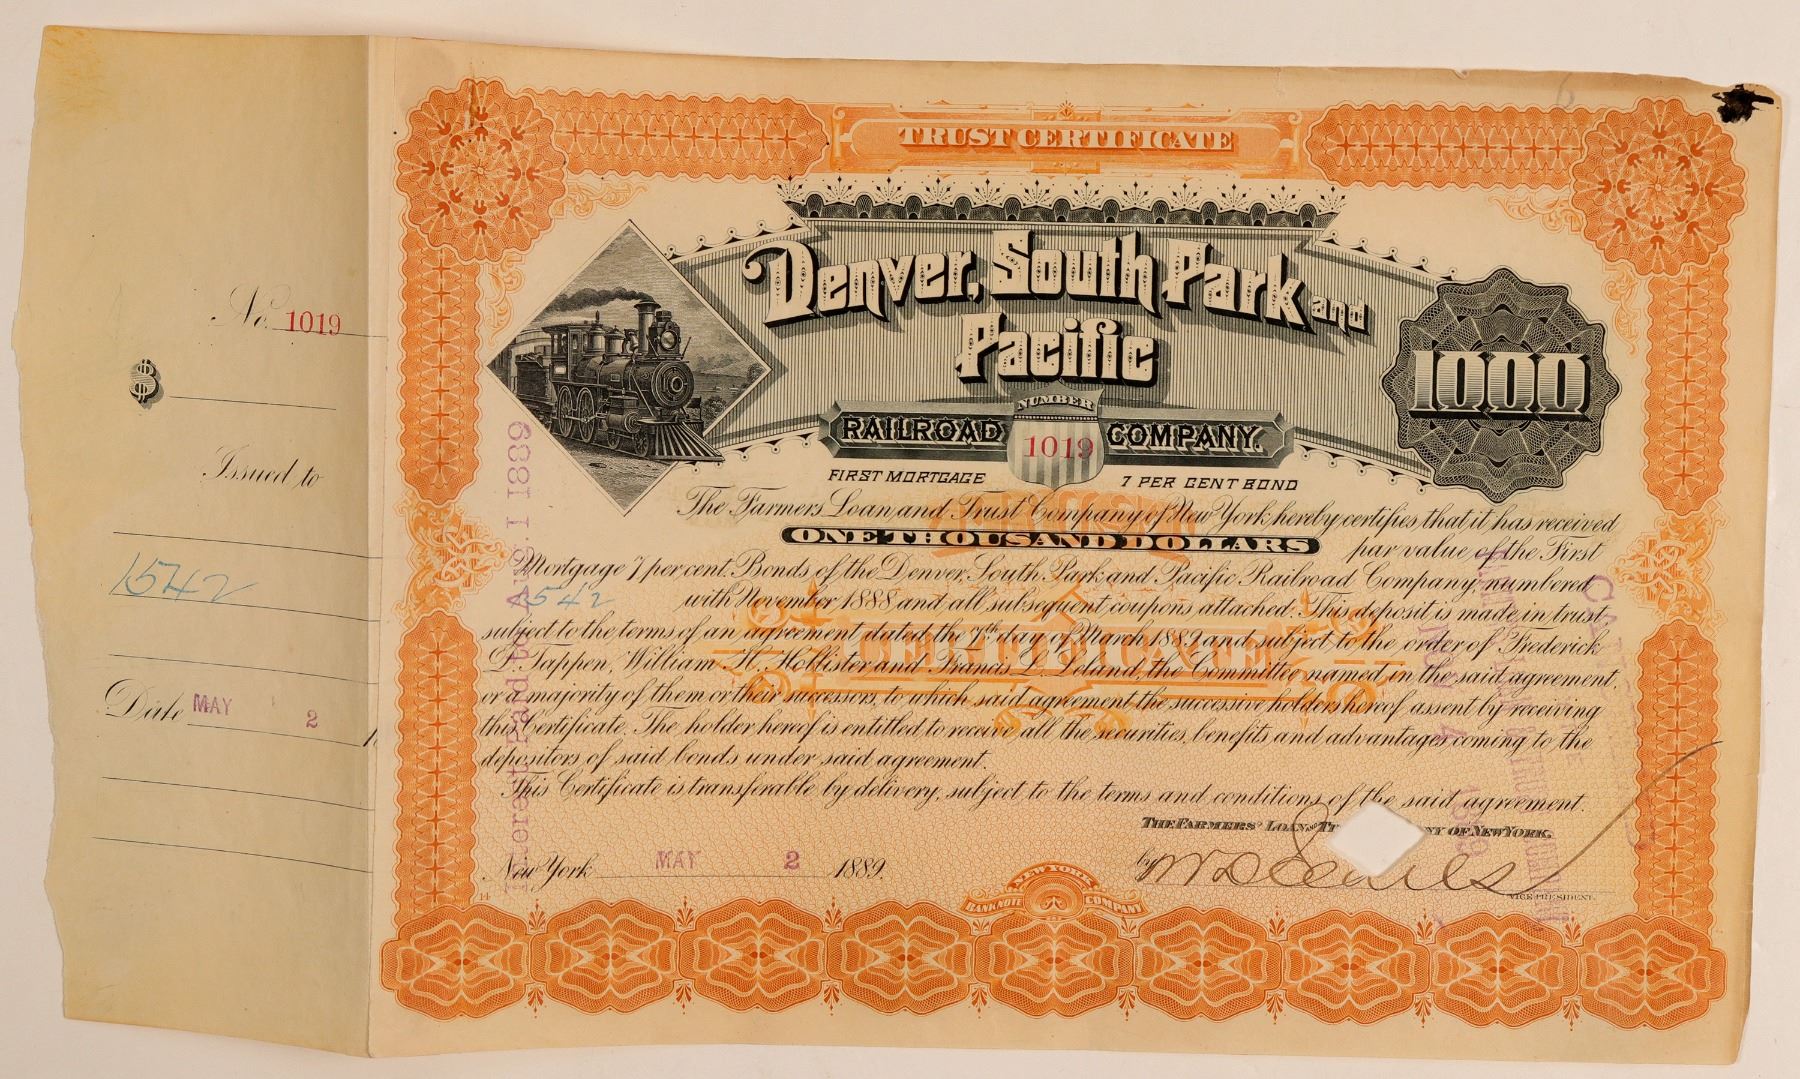 No. 1019
$
Issued to
1542
Date MAY 2
TRUST CERTIFICATE
Denver, South Park and
Pacific
NUMBER
RAILROAD 1019 COMPANY.
1000
FIRST MORTGAGE 7 PER CENT BOND
The Farmers Loan and Trust Company of New York hereby certifies that it has received
ONE THOUSAND DOLLARS par value of the First
Mortgage 7 per cent. Bonds of the Denver, South Park and Pacific Railroad Company, numbered
1542 with November 1888 and all subsequent coupons attached. This deposit is made in trust,
subject to the terms of an agreement dated the 7th day of March 1889 and subject to the order of Frederick
D. Tappen, William H. Hollister and Francis L. Leland, the Committee named in the said agreement,
or a majority of them or their successors, to which said agreement the successive holders hereof assent by receiving
this Certificate. The holder hereof is entitled to receive all the securities, benefits and advantages coming to the
depositors of said bonds under said agreement.
This Certificate is transferable by delivery, subject to the terms and conditions of the said agreement.
THE FARMERS' LOAN AND TR NY OF NEW YORK.
New York MAY 2 1889. by
VICE PRESIDENT.
14
NEW YORK
BANKNOTE COMPANY
CERTIFICATE
Aug. 1 1889